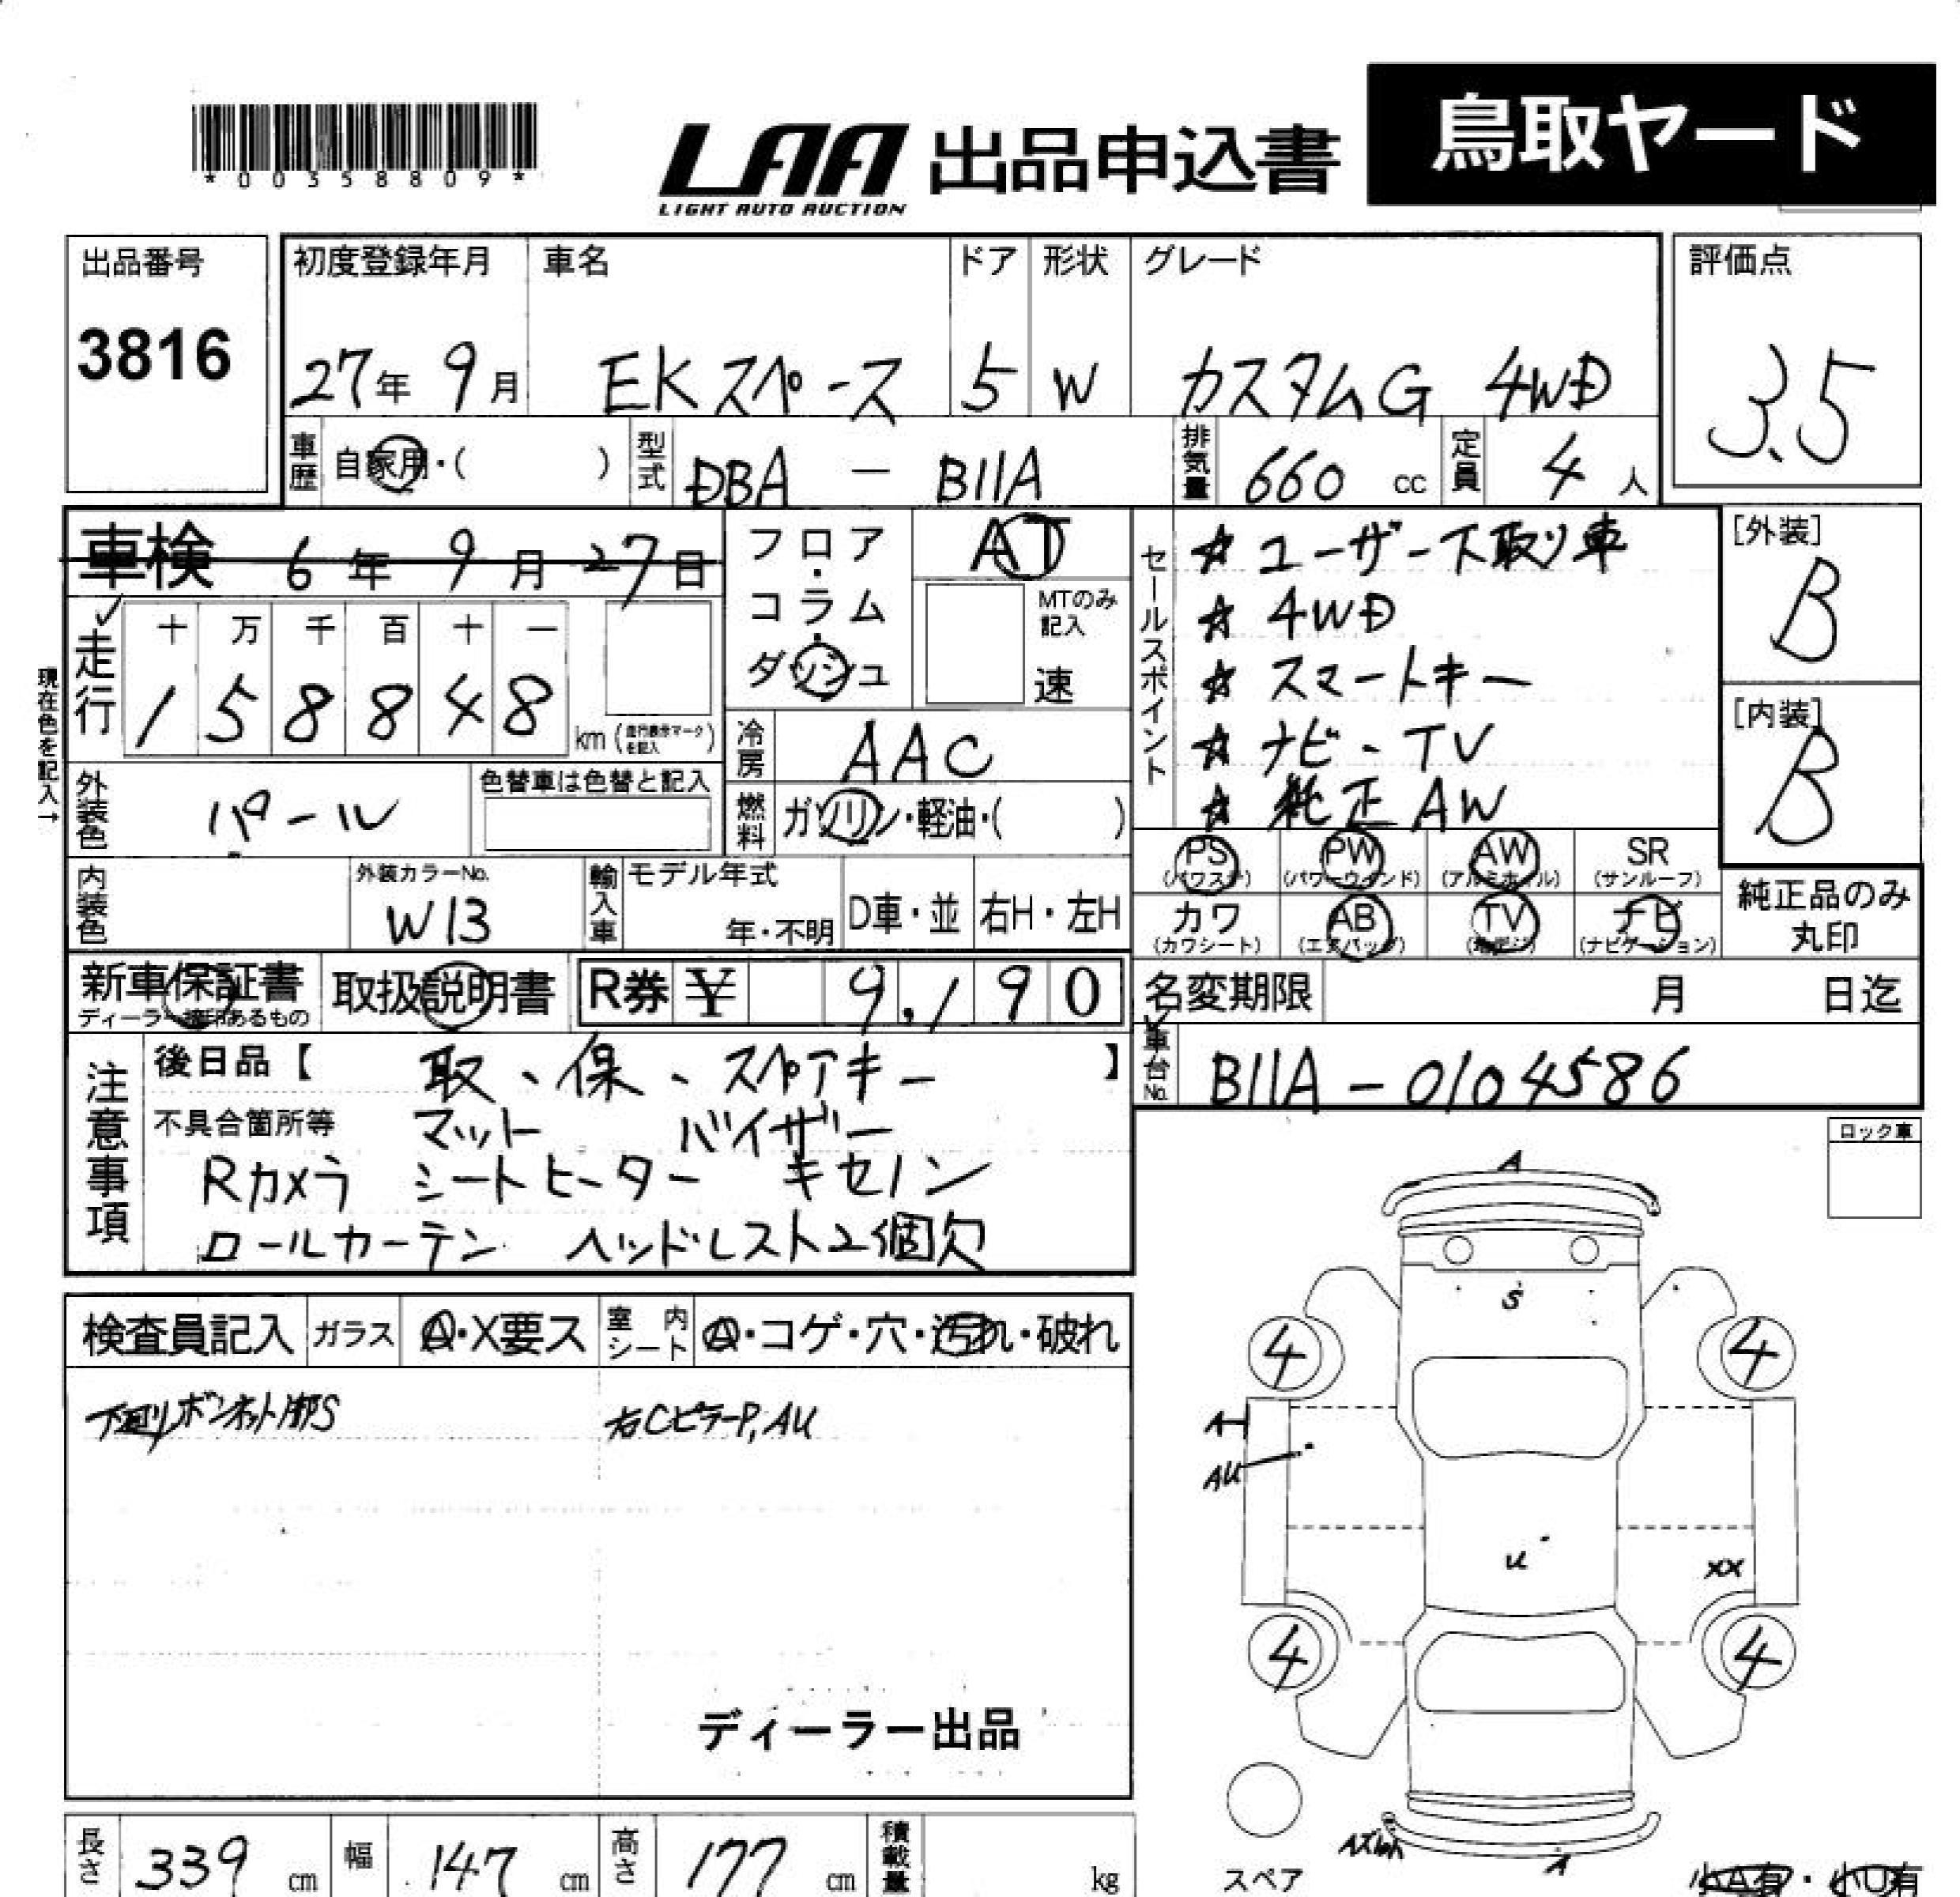 鳥取ヤード
*00358809*
LAA 出品申込書
LIGHT AUTO AUCTION
出品番号
3816
初度登録年月
27年 9月
車名
EKスペース
ドア
5
形状
W
グレード
カスタムG 4WD
評価点
3.5
車歴 自家用・( )
型式 DBA - B11A
排気量 660 cc
定員 4 人
車検 6年 9月 27日
走行
十 万 千 百 十 一
1 5 8 8 4 8 km (走行表示マークを記入)
現在色を記入→
フロア・コラム・ダッシュ
AT
MTのみ記入
速
冷房 AAC
燃料 ガソリン・軽油・( )
外装色 パール
色替車は色替と記入
内装色
外装カラーNo.
W13
輸入車 モデル年式
年・不明
D車・並
右H・左H
セールスポイント
☆ ユーザー下取り車
☆ 4WD
☆ スマートキー
☆ ナビ・TV
☆ 純正AW
[外装]
B
[内装]
B
PS (パワステ)
PW (パワーウインド)
AW (アルミホイル)
SR (サンルーフ)
カワ (カワシート)
AB (エアバッグ)
TV (地デジ)
ナビ (ナビゲーション)
純正品のみ丸印
新車保証書
ディーラー捺印あるもの
取扱説明書
R券 ¥ 9,190
名変期限 月 日迄
車台No. B11A-0104586
注意事項
後日品【 取、保、スペアキー 】
不具合箇所等 マット バイザー
Rカメラ シートヒーター キセノン
ロールカーテン ヘッドレスト2個欠
ロック車
検査員記入
ガラス A・X要ス
室内シート A・コゲ・穴・汚れ・破れ
下回りボンネット内部S
右CピラーP,AU
ディーラー出品
A
S
4
4
A
AU
U
XX
4
4
A
スペア
小A有・小U有
長さ 339 cm
幅 147 cm
高さ 177 cm
積載量 kg